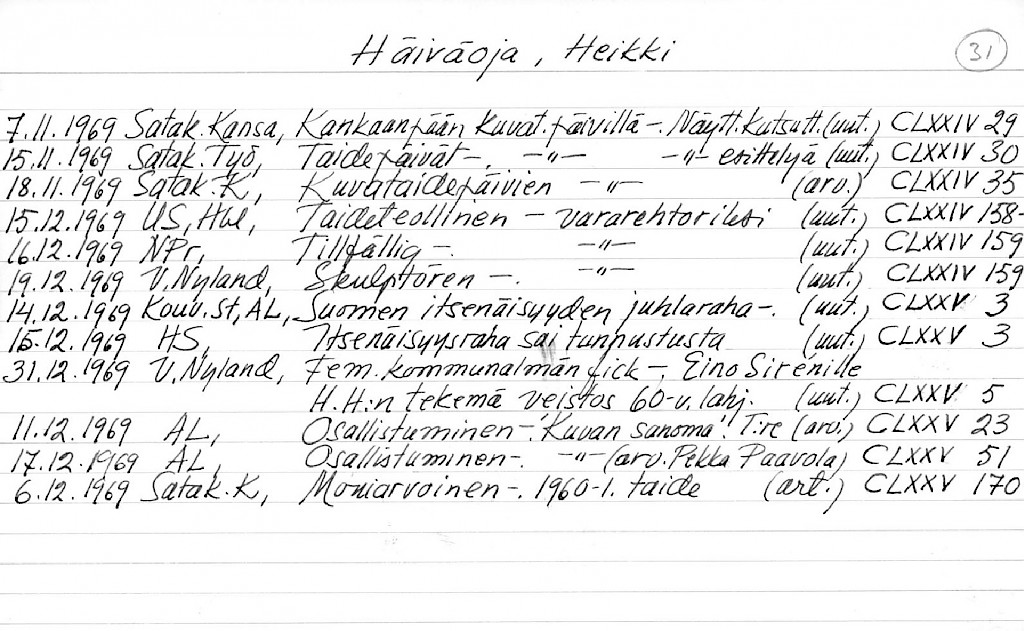 Häiväoja, Heikki 31
7.11.1969 Satak.Kansa, Kankaanpään kuvat.päivillä-. Näytt.kutsutt.(uut.) CLXXIV 29
15.11.1969 Satak.Työ, Taidepäivät-. -"- -"- esittelyä (uut.) CLXXIV 30
18.11.1969 Satak.K, Kuvataidepäivien -"- (arv.) CLXXIV 35
15.12.1969 US, Hbl, Taideteollinen - vararehtoriksi (uut.) CLXXIV 158-
16.12.1969 NPr, Tillfällig -. -"- (uut.) CLXXIV 159
19.12.1969 V.Nyland, Skulptören -. -"- (uut.) CLXXIV 159
14.12.1969 Kouv.St, AL, Suomen itsenäisyyden juhlaraha-. (uut.) CLXXV 3
15.12.1969 HS, Itsenäisyysraha sai tunnustusta (uut.) CLXXV 3
31.12.1969 V.Nyland, Fem.kommunalmän fick-. Eino Sirénille
H.H:n tekemä veistos 60-v.lahj. (uut.) CLXXV 5
11.12.1969 AL, Osallistuminen-. "Kuvan sanoma". T:re (arv.) CLXXV 23
17.12.1969 AL, Osallistuminen-. -"- (arv. Pekka Paavola) CLXXV 51
6.12.1969 Satak.K, Moniarvoinen-. 1960-l. taide (art.) CLXXV 170